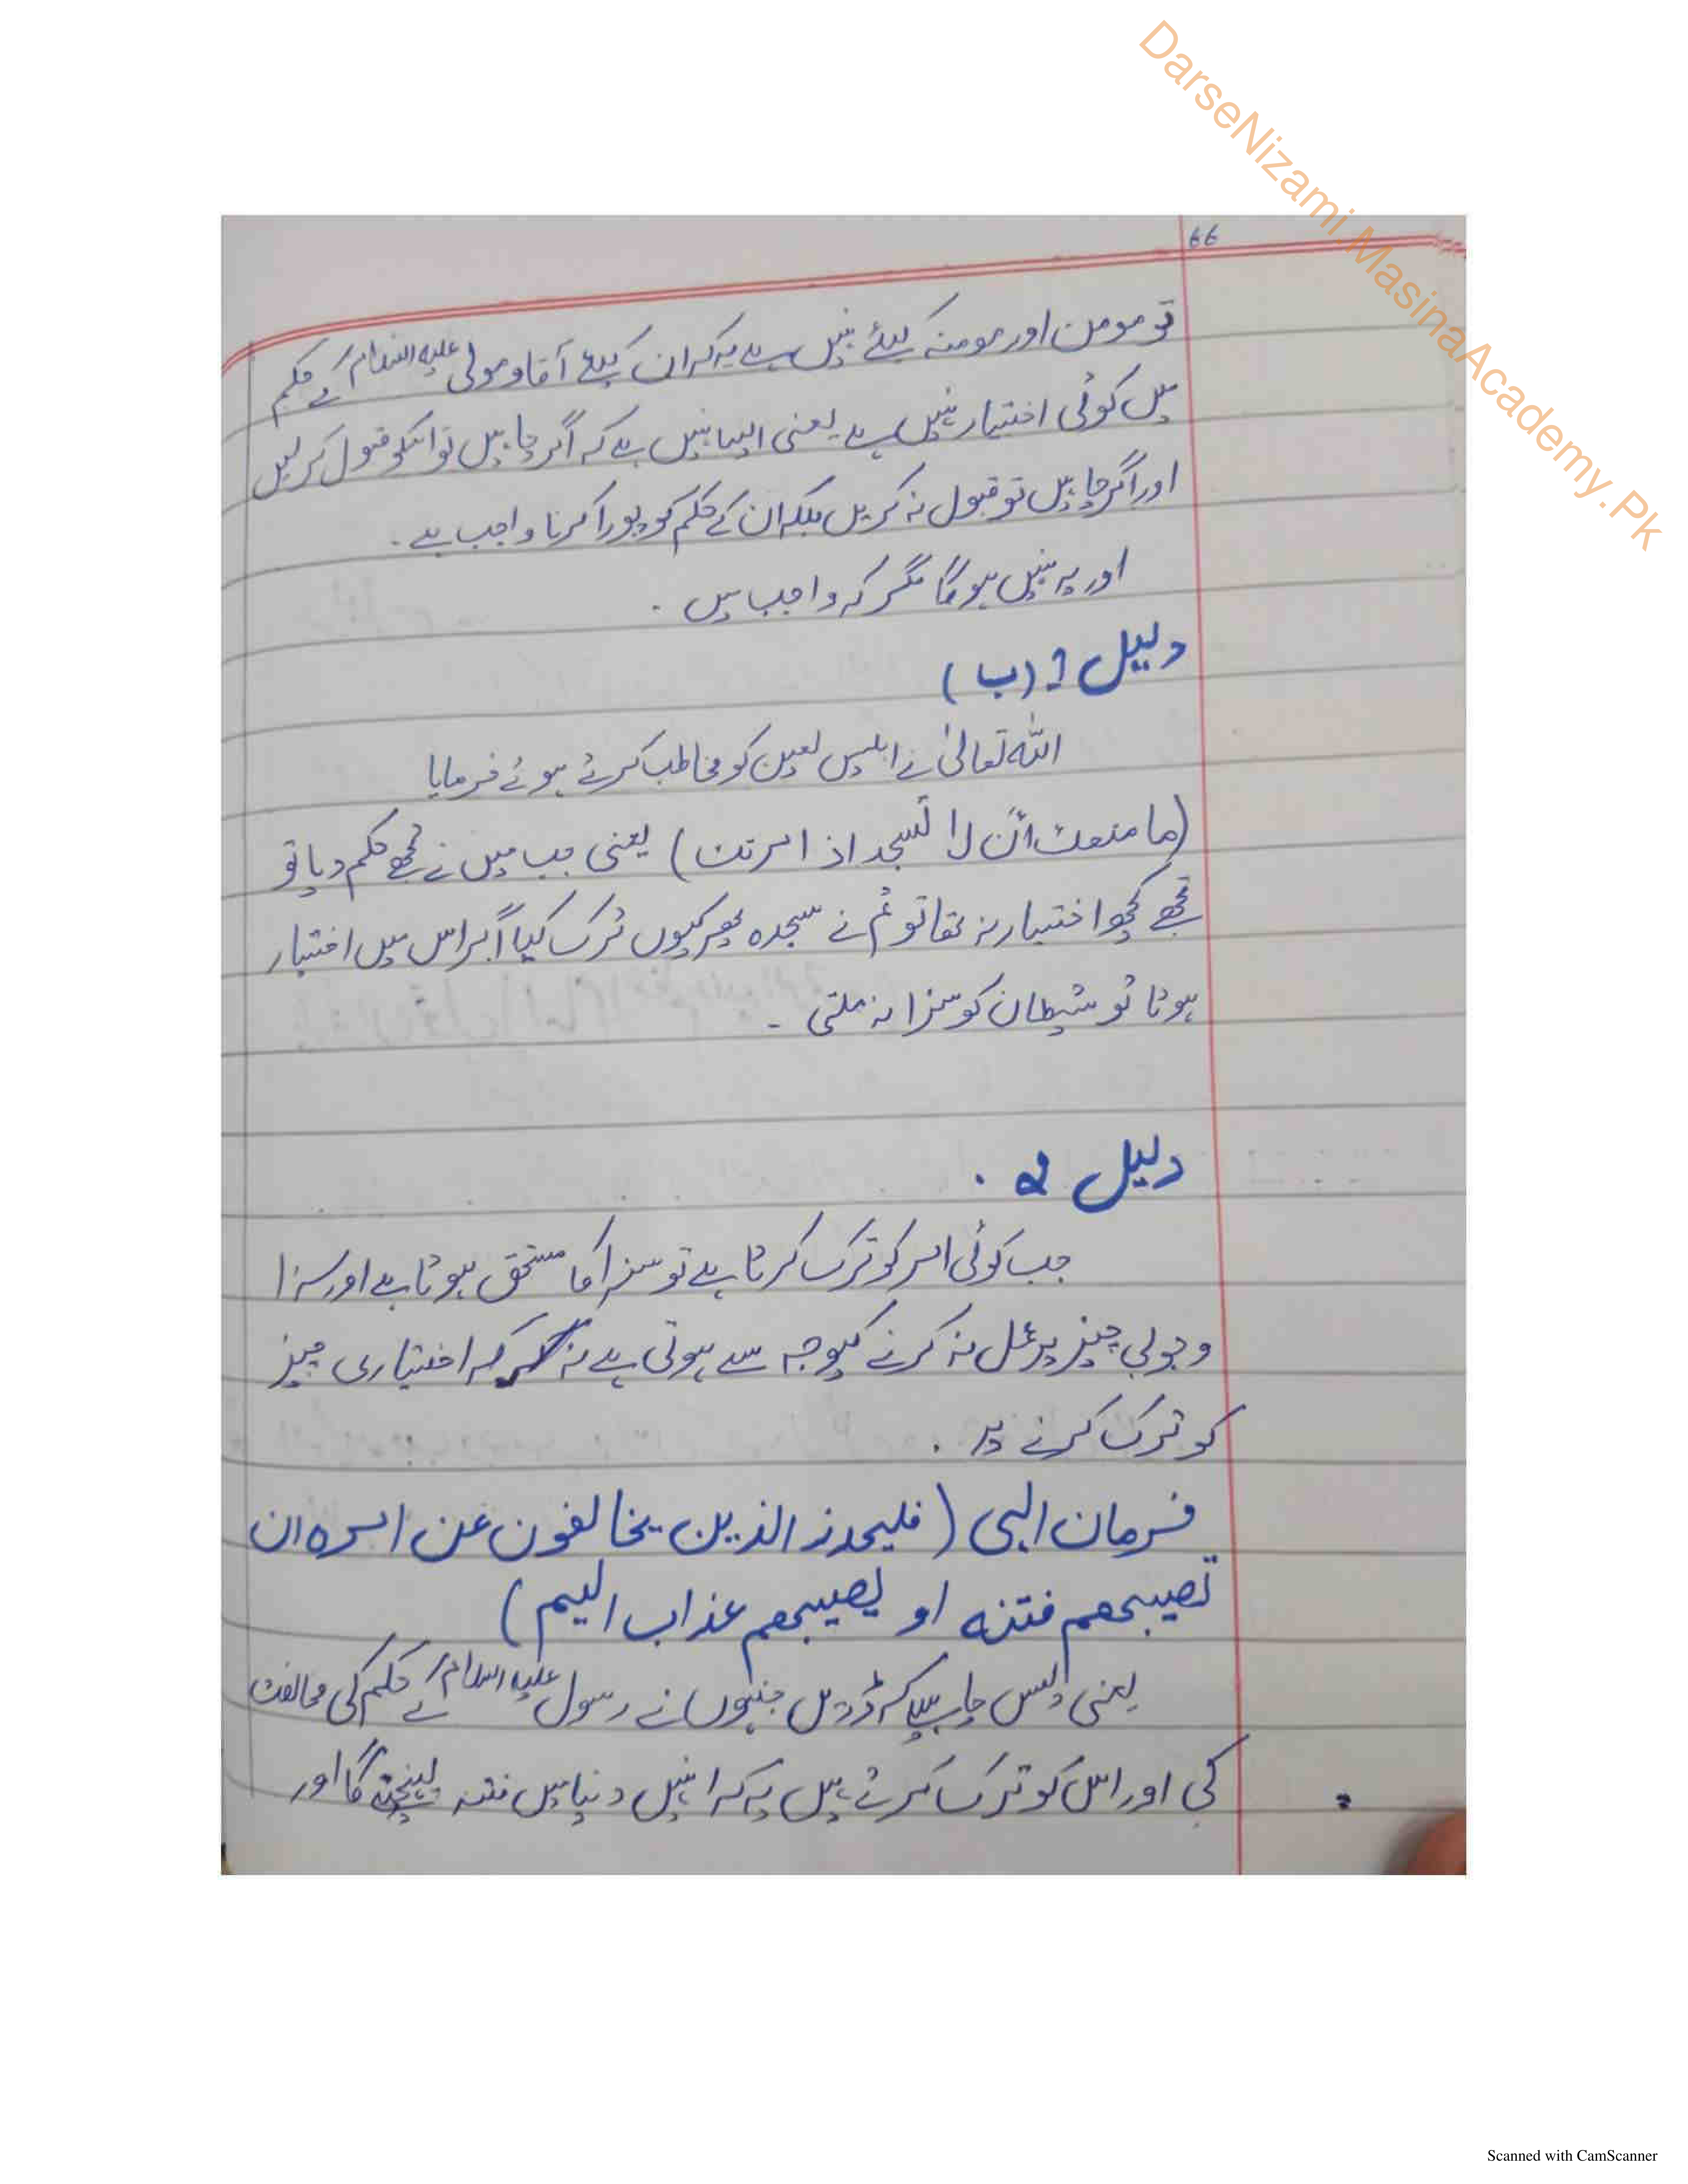 DarseNizami.MasinaAcademy.Pk
66
تو مومن اور مومنہ کیلئے نہیں ہے یہ کہ ان کیلئے آقا و مولی علیہ السلام کے حکم
میں کوئی اختیار نہیں ہے یعنی ایسا نہیں ہے کہ اگر چاہیں تو اسکو قبول کر لیں
اور اگر چاہیں تو قبول نہ کریں بلکہ ان کے حکم کو پورا کرنا واجب ہے ۔
اور یہ نہیں ہوگا مگر کہ واجب میں ۔
دلیل 1 (ب)
اللہ تعالیٰ نے ابلیس لعین کو مخاطب کرتے ہوئے فرمایا
(ما منعک أن لا تسجد اذ امرتک) یعنی جب میں نے تجھے حکم دیا تو
تجھے کچھ اختیار نہ تھا تو تم نے سجدہ پھر کیوں ترک کیا اگر اس میں اختیار
ہوتا تو شیطان کو سزا نہ ملتی ۔
دلیل 2 .
جب کوئی امر کو ترک کرتا ہے تو سزا کا مستحق ہوتا ہے اور سزا
وجوبی چیز پر عمل نہ کرنے کیوجہ سے ہوتی ہے نہ کہ اختیاری چیز
کو ترک کرنے پر ۔
فرمان الہی (فلیحذر الذین یخالفون عن امرہ ان
تصیبھم فتنہ او یصیبھم عذاب الیم)
یعنی پس چاہیے کہ ڈریں جنہوں نے رسول علیہ السلام کے حکم کی مخالفت
کی اور اس کو ترک کرتے ہیں یہ کہ انہیں دنیا میں فتنہ پہنچے گا اور
Scanned with CamScanner